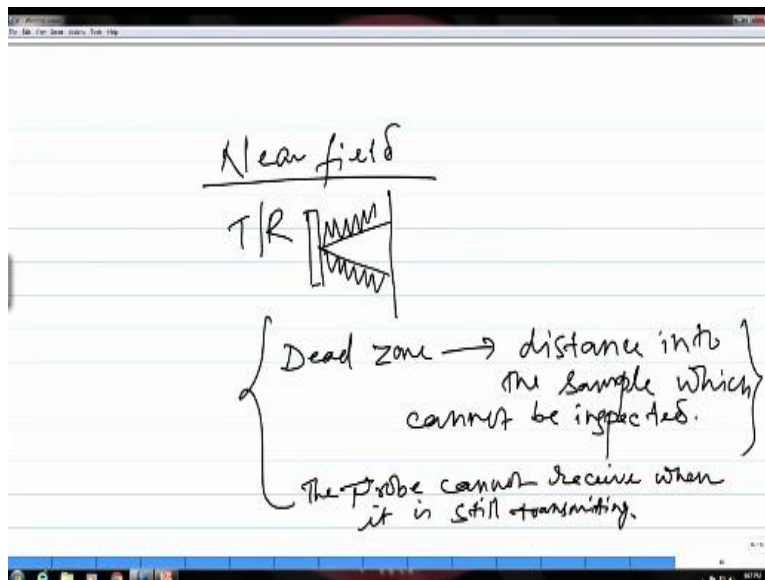 Near field
T/R
Dead zone → distance into
the sample which
cannot be inspected.
The probe cannot receive when
it is still transmiting.